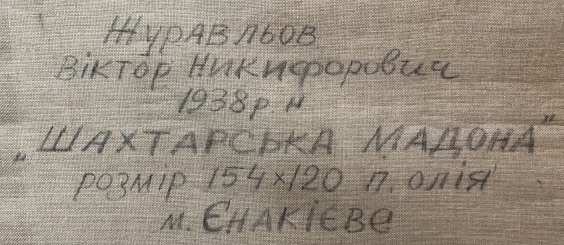 Журавльов
Віктор Никифорович
1938 р. н
„ШАХТАРСЬКА МАДОНА"
розмір 154×120 п. олія
м. Єнакієве